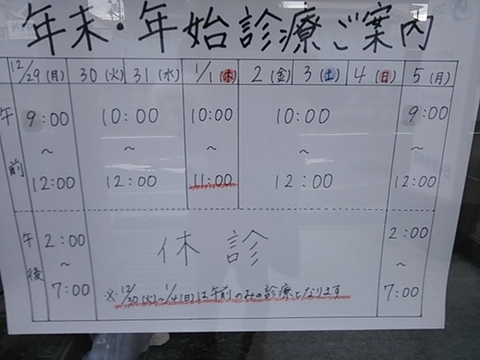 年末・年始診療ご案内
12/29(月) 30(火) 31(水) 1/1(木) 2(金) 3(土) 4(日) 5(月)
午前 9:00 10:00 10:00 10:00 9:00
〜 〜 〜 〜 〜
12:00 12:00 11:00 12:00 12:00
午後 2:00 休診 2:00
〜 〜
7:00 ※12/30(火)〜1/4(日)は午前のみの診療となります 7:00